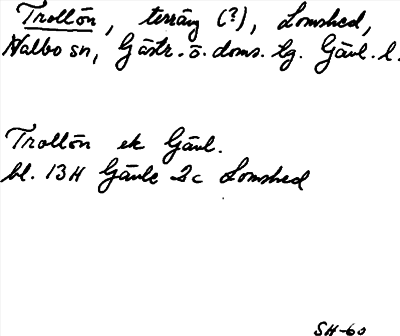 Trollön, terräng (?), Lomshed,
Valbo sn, Gästr. ö. doms. tg. Gävl. l.
Trollön ek Gävl.
bl. 13H Gävle 2c Lomshed
SH-60